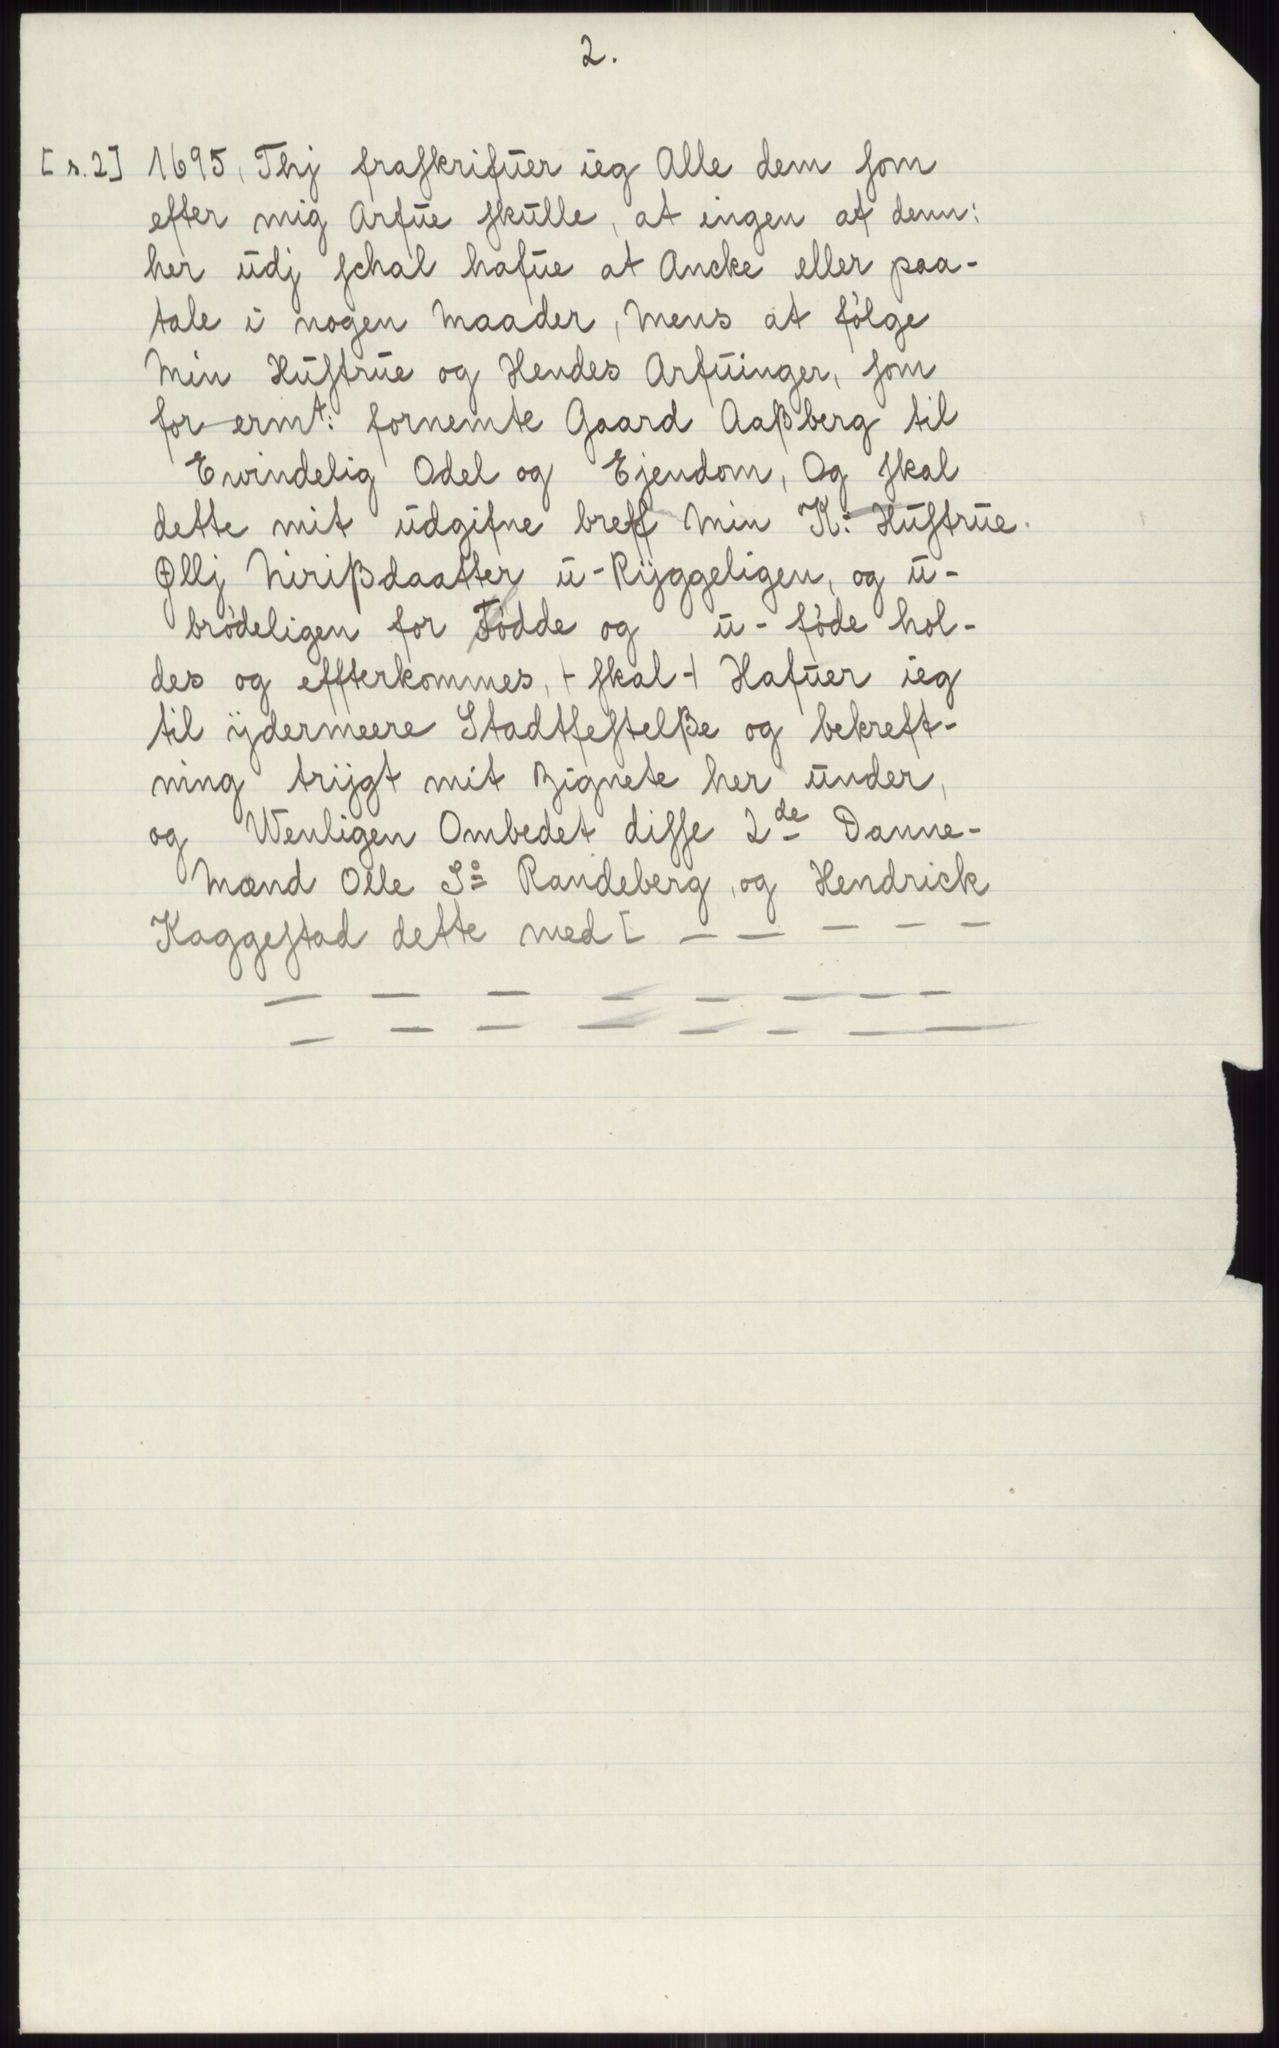 2.
[s.2] 1695, Thj fraskrifuer ieg Alle dem som
efter mig Arfue skulle, at ingen af denn:
her udj schal hafue at Ancke eller paa-
tale i nogen Maader, Mens at følge
Min Hustrue og Hendes Arfuinger, som
for-ermt: fornemte Gaard Aaßberg til
Ewindelig Odel og Ejendom, Og skal
dette mit udgifne breff Min K: Hustrue.
Øllj Nirißdaatter u-Rÿggeligen, og u-
brødeligen for Fødde og u-føde hol-
des og effterkommes, + skal + Hafuer ieg
til ÿdermeere Stadtfestelße og bekreft-
ning trÿgt mit Zignete her under,
og Wenligen Ombedet disse 2de Danne-
Mænd Olle So Randeberg, og Hendrick
Kaggestad dette med [ — — — — —
— — — — — — — —
— — — — — — — —